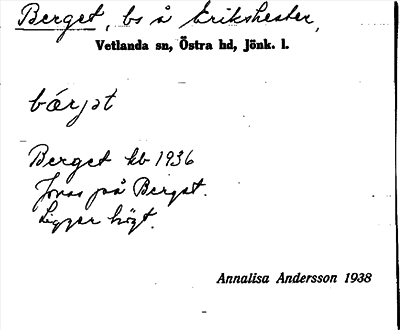 Berget, bs å Erikshester,
Vetlanda sn, Östra hd, Jönk. l.
bærjət
Berget kb 1936
Jonas på Berget.
Ligger högt.
Annalisa Andersson 1938